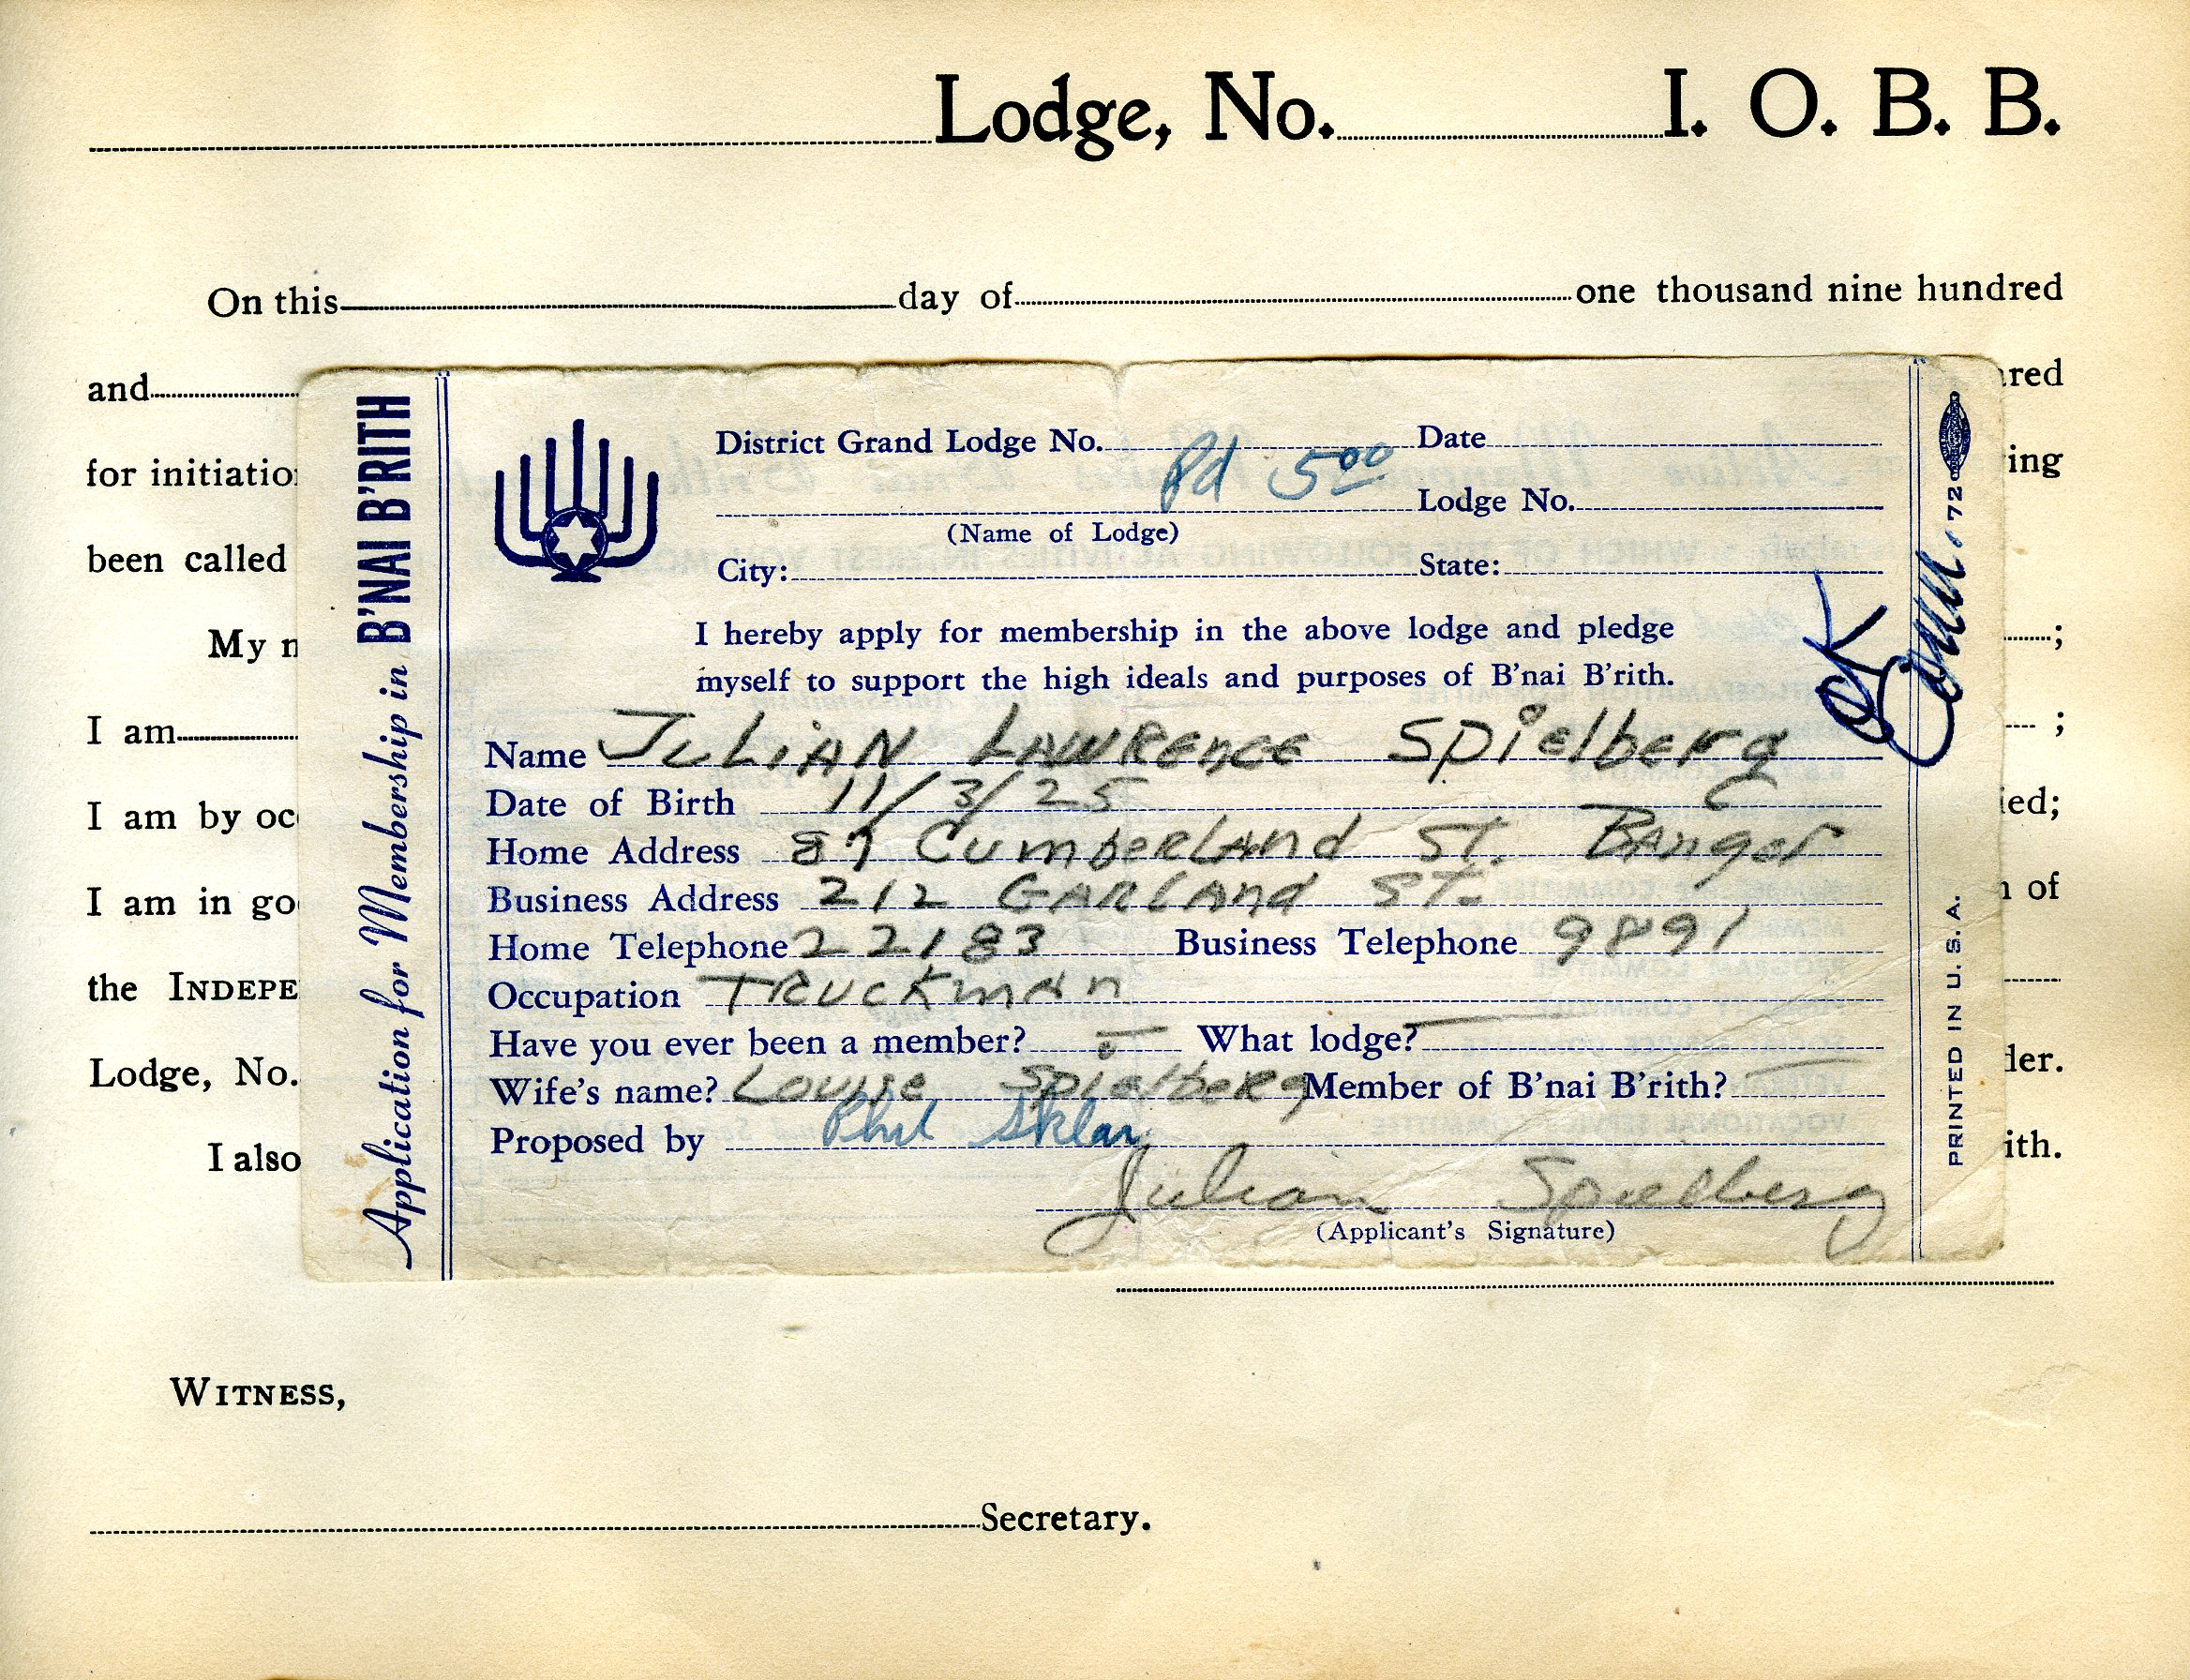 Lodge, No. I. O. B. B.
On this day of one thousand nine hundred
and red
for initiatio ing
been called
My n ;
I am ;
I am by oc ied;
I am in go n of
the INDEPE
Lodge, No. der.
I also ith.
WITNESS,
Secretary.
Application for Membership in B'NAI B'RITH
District Grand Lodge No. Date
Pd 5.00
Lodge No.
(Name of Lodge)
City: State:
I hereby apply for membership in the above lodge and pledge
myself to support the high ideals and purposes of B'nai B'rith.
OK
Name JULIAN LAWRENCE SPielberg
Date of Birth 11/3/25
Home Address 87 Cumberland St. Bangor
Business Address 212 GARLAnd ST.
Home Telephone 22183 Business Telephone 9891
Occupation TRuckman
Have you ever been a member? — What lodge? —
Wife's name? Louise Spielberg Member of B'nai B'rith? —
Proposed by Phil Sklar
Julian Spielberg
(Applicant's Signature)
72
PRINTED IN U. S. A.